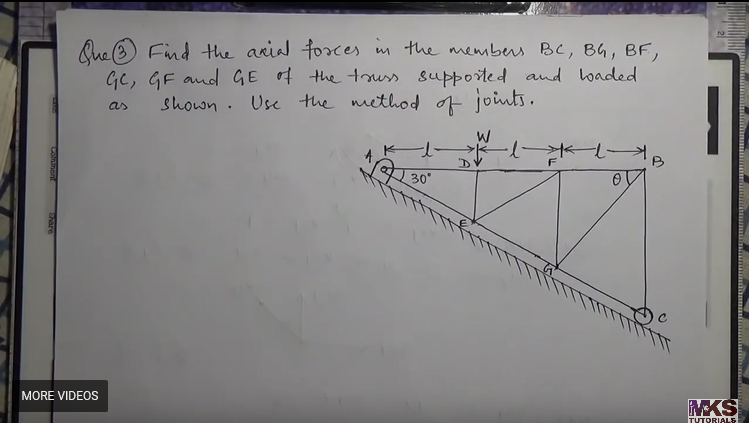 Que ③ Find the axial forces in the members BC, BG, BF,
GC, GF and GE of the truss supported and loaded
as shown. Use the method of joints.
W
l l l
A D F B
30° θ
E
G
C
MORE VIDEOS
MKS
TUTORIALS